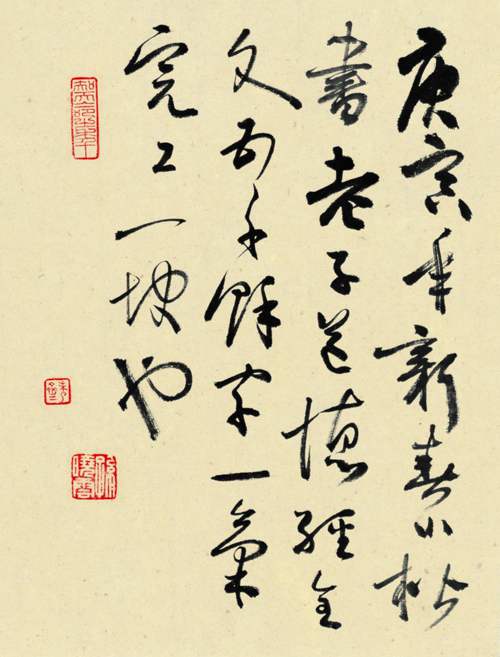 庚寅年新春小楷
書老子道德經全
文五千餘字一氣
完工一快也
孫曉雲